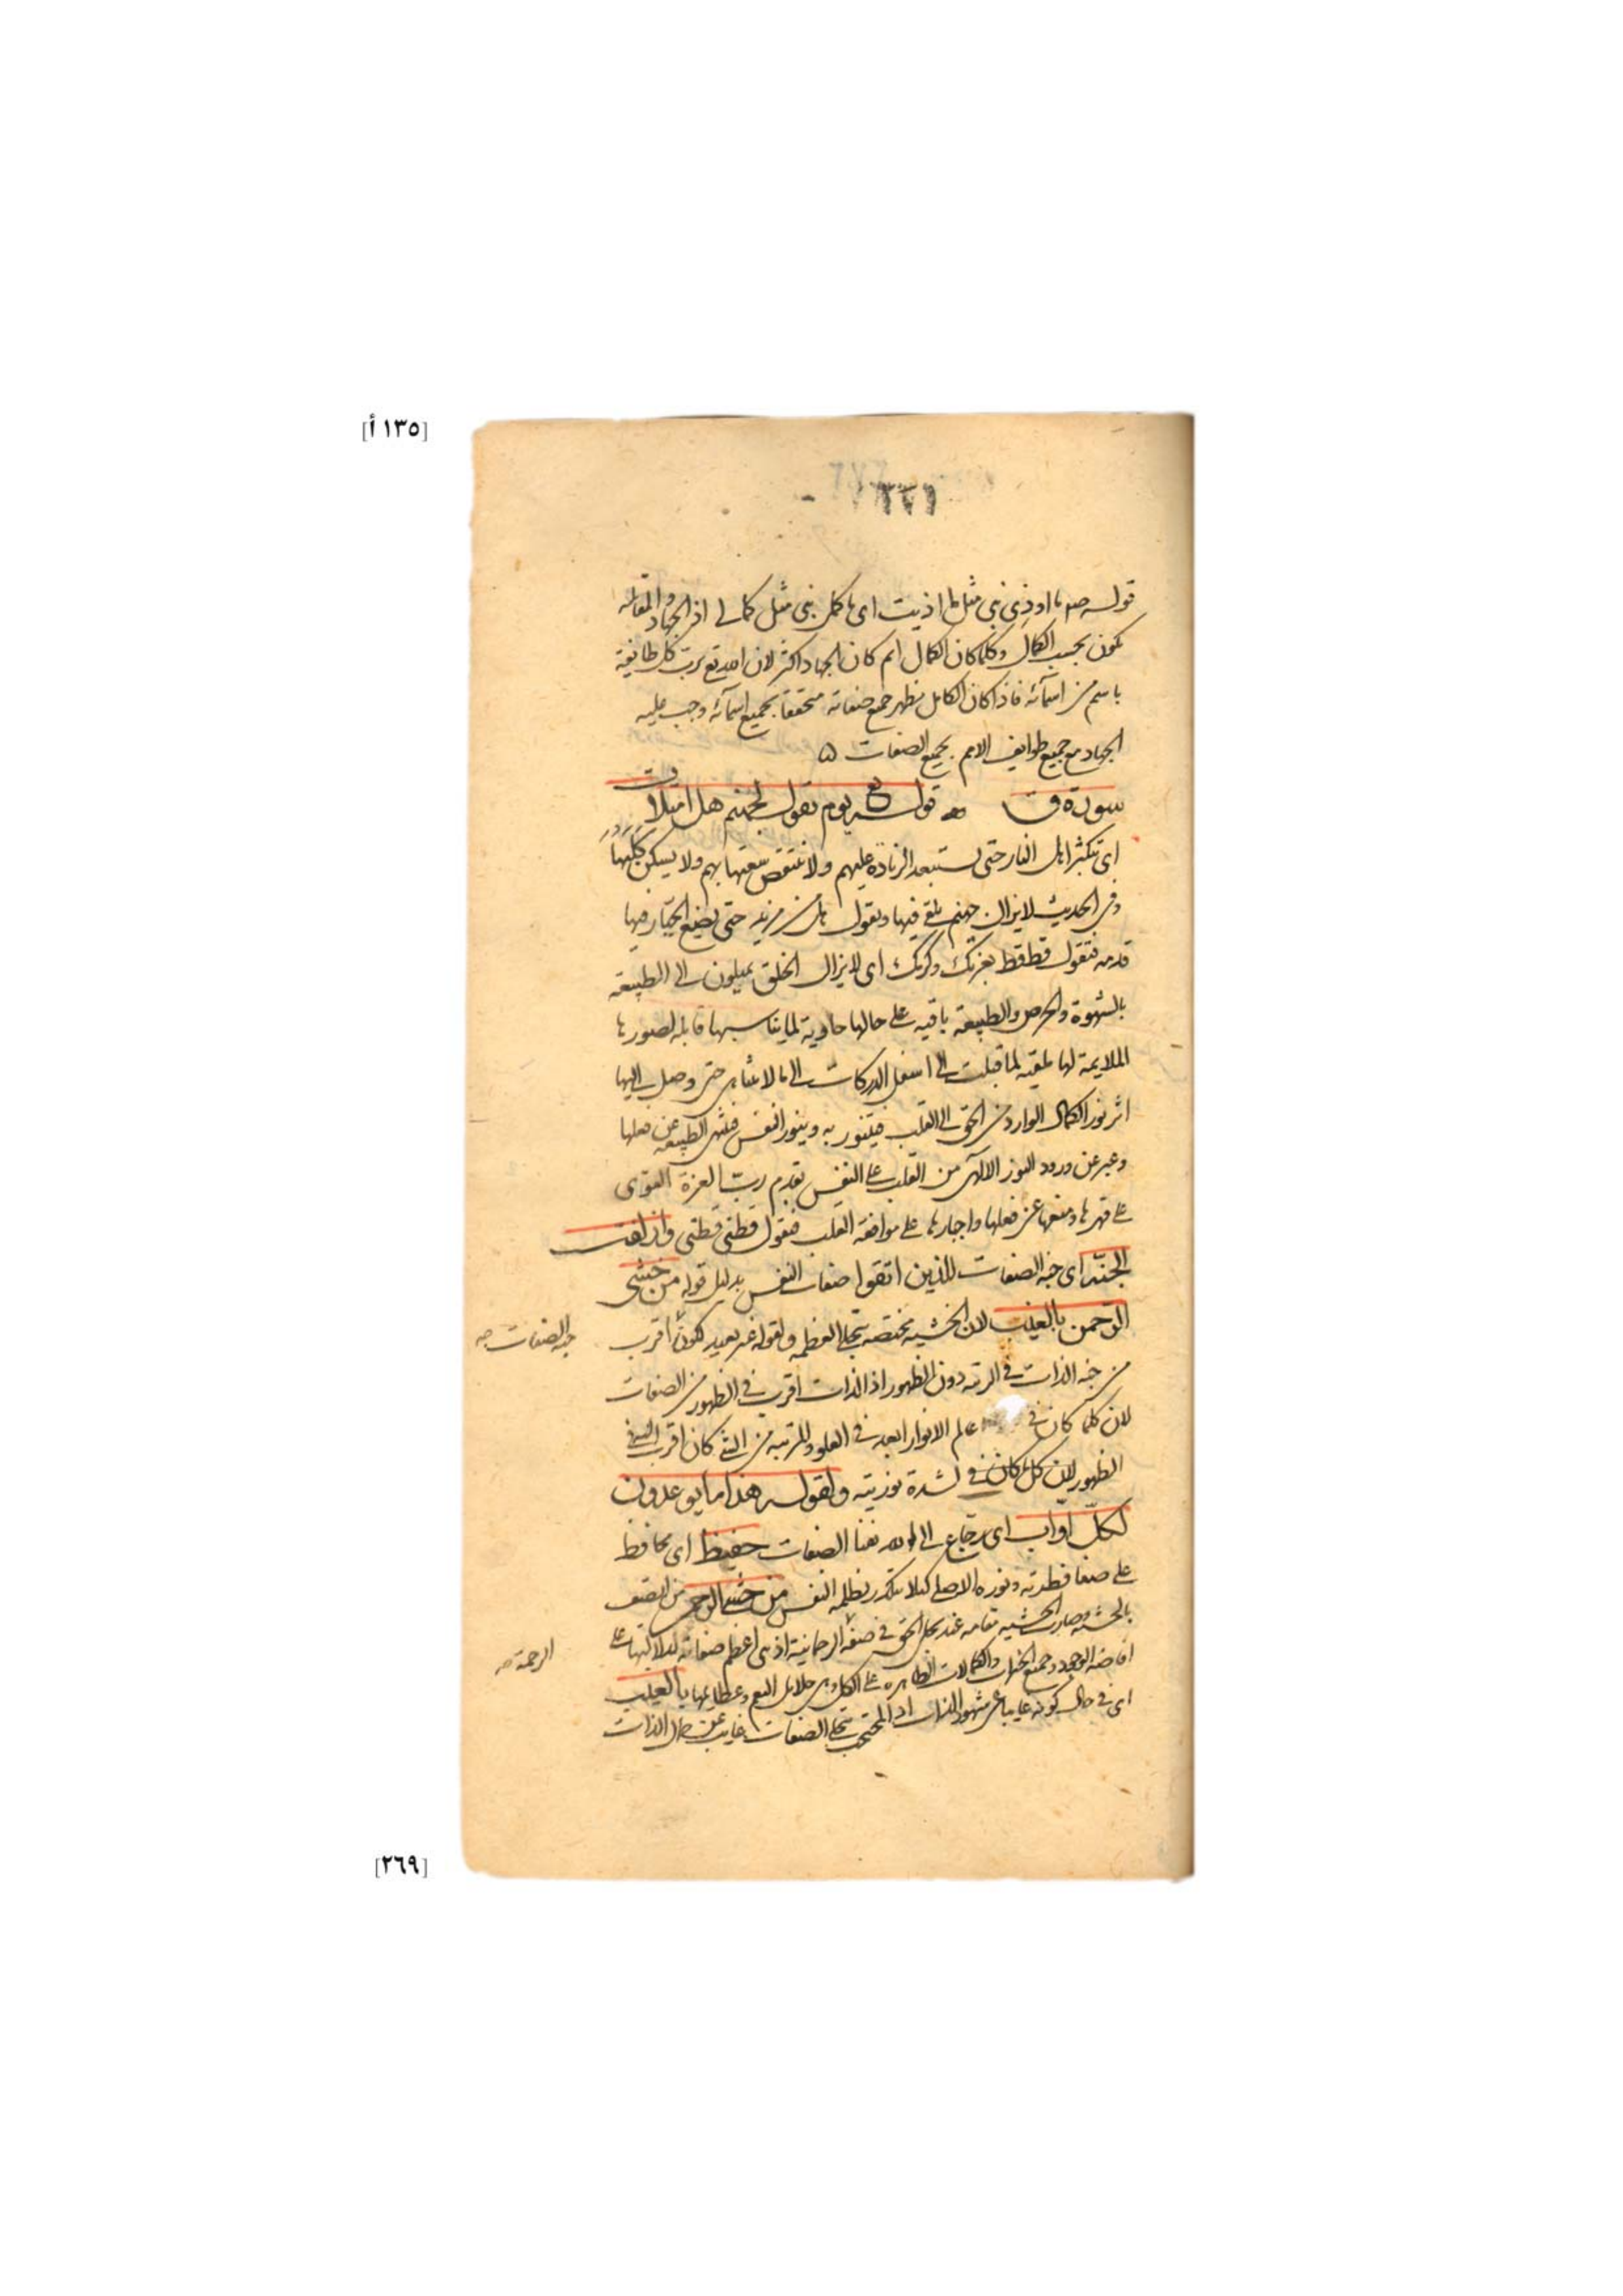 [١٣٥ أ]
٢٦٩
قوله صم ما اوذى نبى مثل ما اذيت اى ما كمل نبى مثل كمالى اذ الجهاد والمقابلة
تكون بحسب الكمال وكلما كان الكمال اتم كان الجهاد اكثر لان الله تع يرب كل طايفة
باسم من اسمآئه فاذا كان الكامل مظهر جميع صفاته متحققا بجميع اسمآئه وجب عليه
الجهاد مع جميع طوايف الامم بجميع الصفات
سورة ق قوله تع يوم نقول لجهنم هل امتلات
اى تكثر اهل النار حتى تستبعد الزيادة عليهم ولا تنتقص سعتها بهم ولا يسكن كلبها
وفى الحديث لا يزال جهنم يلقى فيها وتقول هل من مزيد حتى يضع الجبار فيها
قدمه فتقول قط قط بعزتك وكرمك اى لا يزال الخلق يميلون الى الطبيعة
بالشهوة والحرص والطبيعة باقية على حالها حاوية لما يناسبها قابلة لصورها
الملايمة لها ملقية لما قبلت الى اسفل الدركات الى ما لا يتناهى حتى وصل اليها
اثر نور الكمال الوارد من الحق الى القلب فيتنور به ويتنور النفس فتنتهى الطبيعة عن فعلها
وعبر عن ورود النور الالهى من القلب على النفس بقدم رب العزة القوى
على قهرها ومنعها عن فعلها واجبارها على موافقة القلب فتقول قطنى قطنى وازلفت
الجنة اى جنة الصفات للذين اتقوا صفات النفس بدليل قوله من خشى
الرحمن بالغيب لان الخشية مختصة بتجلى العظمة ولقوله غير بعيد لكون اقرب
جنة الصفات صح
من جنة الذات فى الرتبة دون الظهور اذ الذات اقرب فى الظهور من الصفات
لان كلما كان فى عالم الانوار ابعد فى العلو والمرتبة من الشئ كان اقرب اليه فى
الظهور لشدة نوريته ولقوله هذا ما توعدون
لكل اواب اى رجاع الى الله بفنا الصفات حفيظ اى محافظ
على صفا فطرته ونوره الاصلى كيلا يتكدر بظلمة النفس من خشى الرحمن من اتصف
بالخشية وصارت الخشية مقامه عند تجلى الحق فى صفة الرحمانية اذ هى اعظم صفاته لدلالتها على
الرحمة صح
افاضة الوجود وجميع الخيرات والكمالات الظاهرة على الكل وهى جلايل النعم وعظايمها بالغيب
اى فى حال كونه غايبا عن شهود الذات اذ المحتجب بتجلى الصفات غايب عن جمال الذات
[٢٦٩]